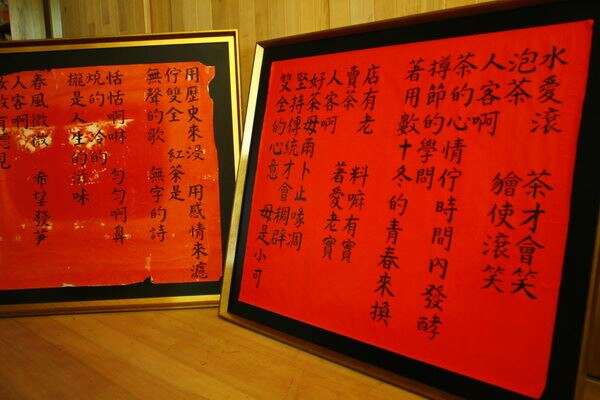 水愛滾 茶才會笑
泡茶 使滾笑
人客啊
茶的心情佇時間內發酵
撙節的學問
著用數十冬的青春來換
店有老 料嘛有實
賣茶 著愛老實
人客啊
好茶毋 卜止 凋
堅持傳統才會稠
雙全的心意 毋是小可
用歷史來浸 用感情來
佇雙全 紅茶是
無聲的歌 無字的詩
恬恬啊啉 勻勻啊鼻
燒的 冷的
攏是人生的滋味
春風微微 希望發芽
人客啊